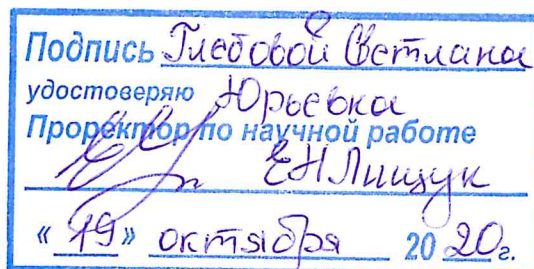 Подпись Глебовой Светлана
удостоверяю Юрьевка
Проректор по научной работе
ЕНЛищук
«19» октября 2020г.